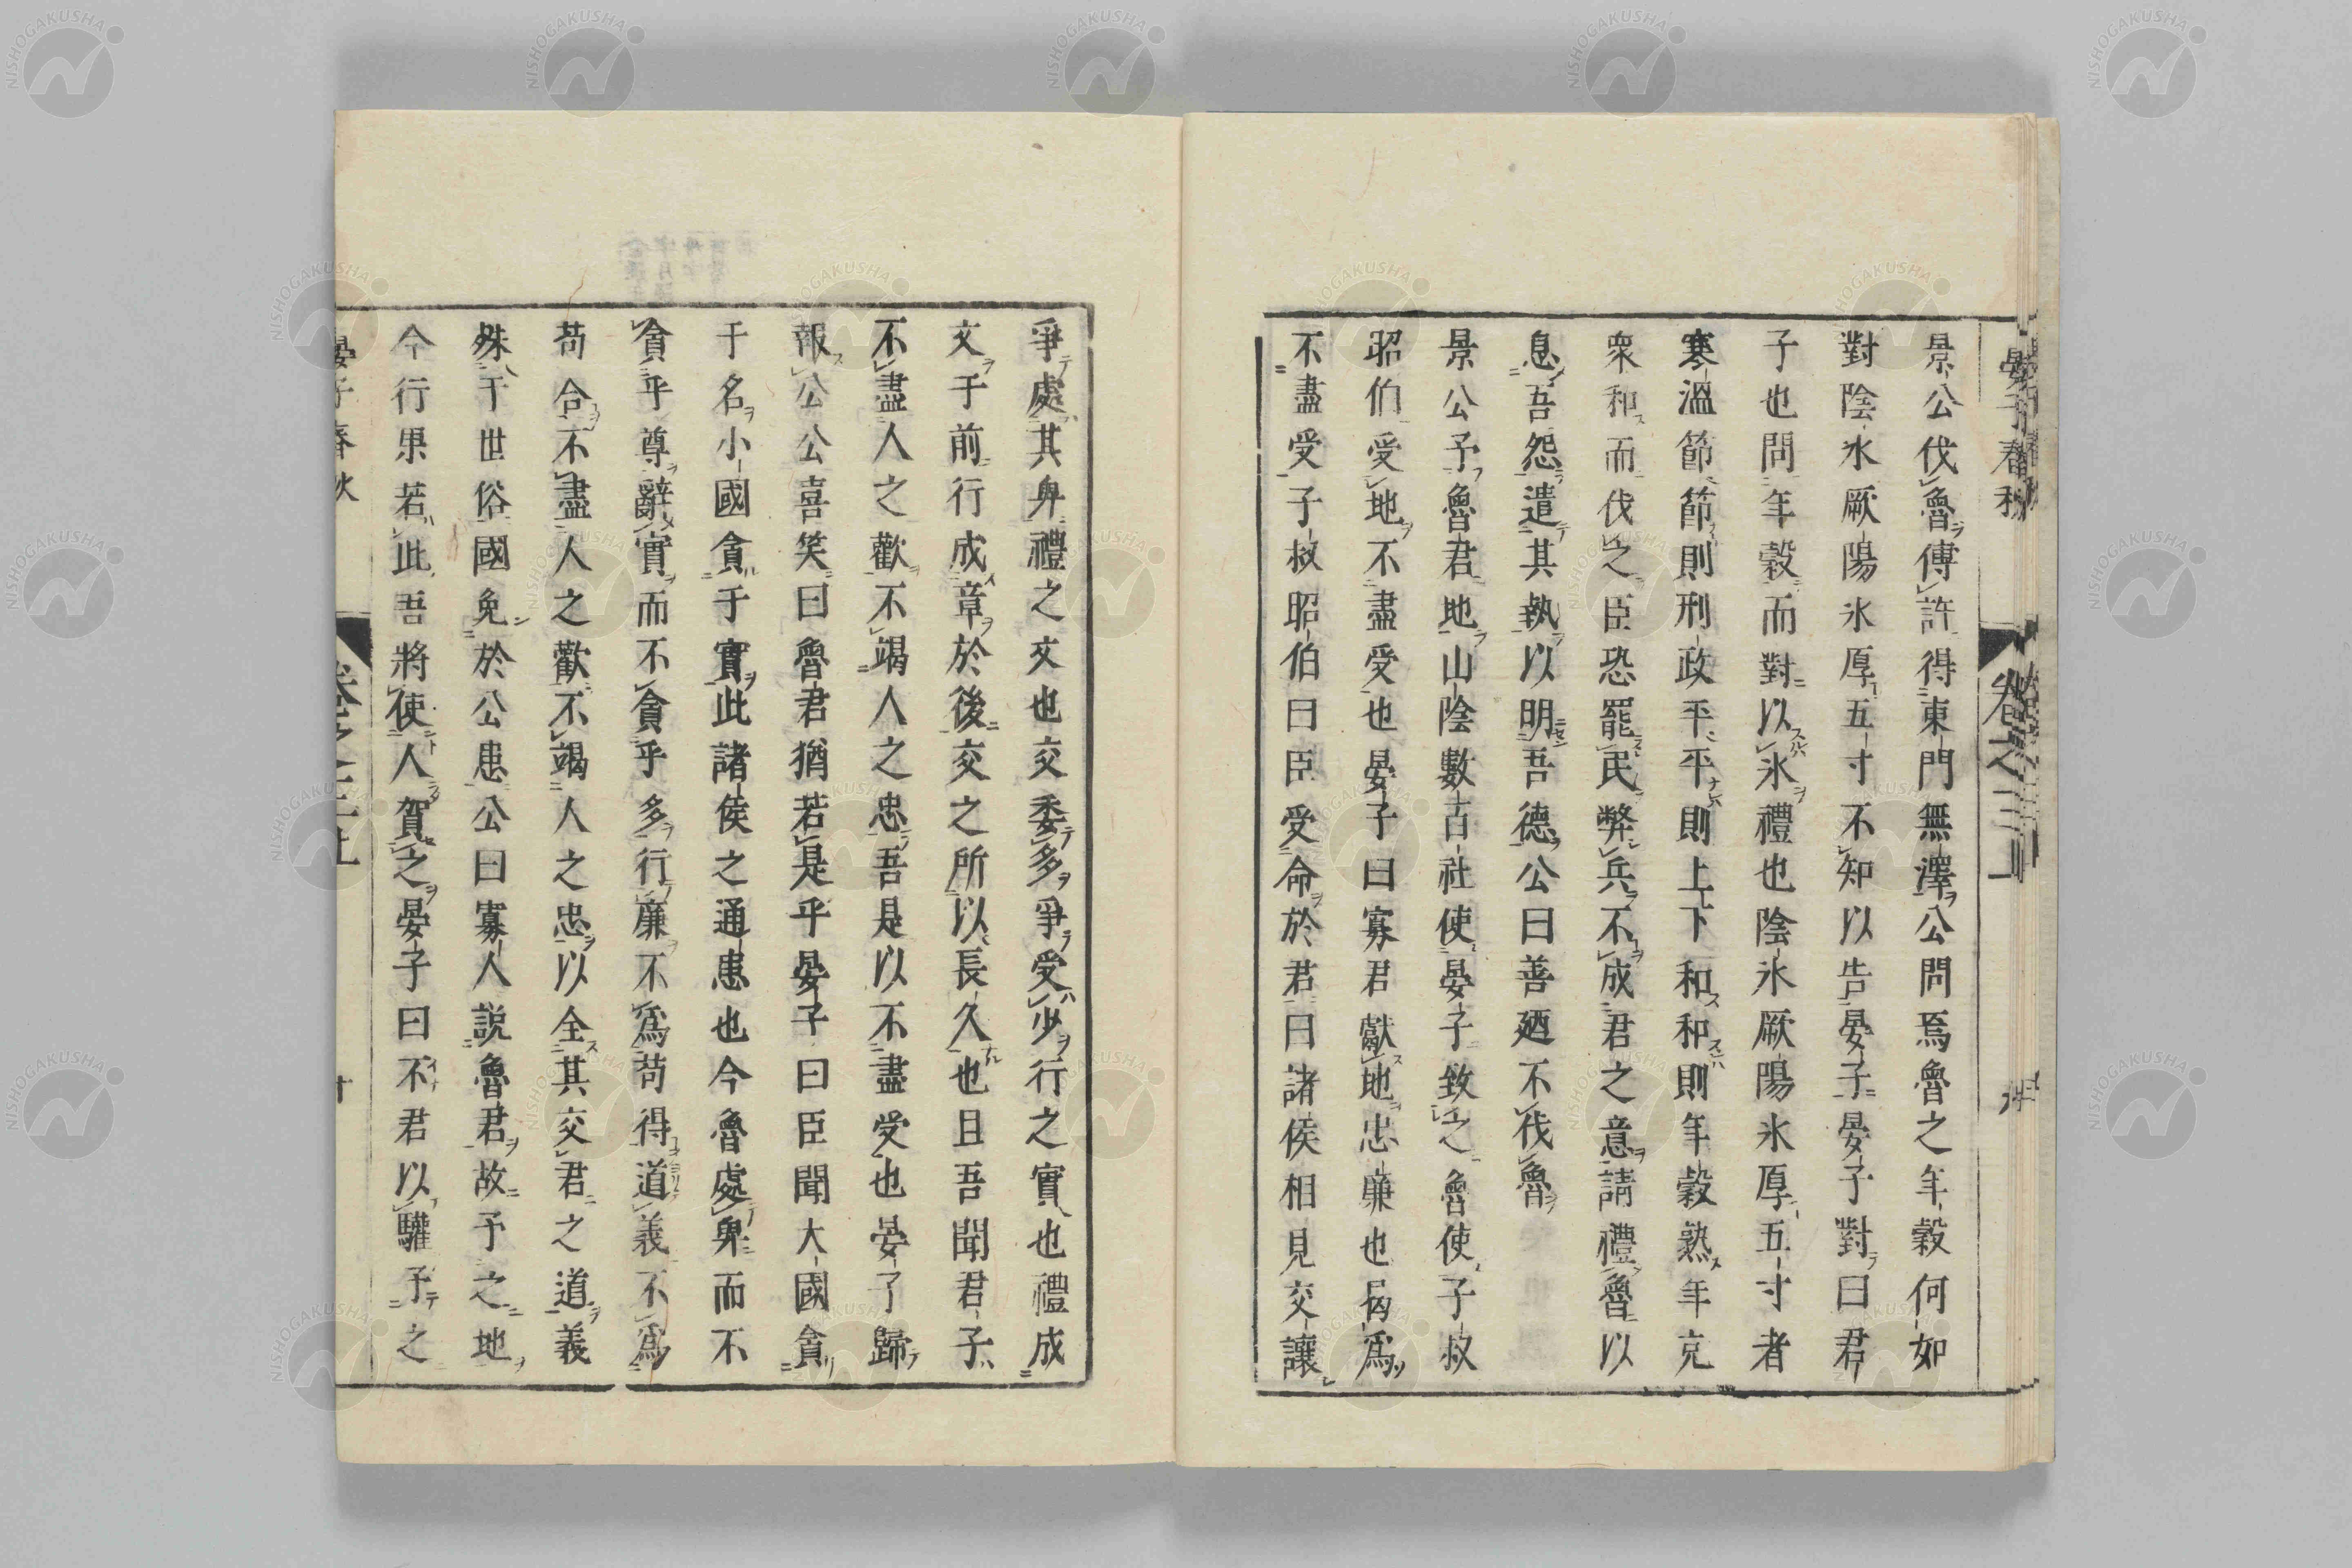 景公伐魯傅許得東門無澤公問焉魯之年穀何如
對陰氷厥陽氷厚五寸不知以告晏子晏子對曰君
子也問年穀而對以氷禮也陰氷厥陽氷厚五寸者
寒溫節節則刑政平平則上下和和則年穀熟年充
衆和而伐之臣恐罷民弊兵不成君之意請禮魯以
息吾怨遣其執以明吾德公曰善廼不伐魯
景公予魯君地山陰數百社使晏子致之魯使子叔
昭伯受地不盡受也晏子曰寡君獻地忠廉也曷爲
不盡受子叔昭伯曰臣受命於君曰諸侯相見交讓
爭處其卑禮之文也交委多爭受少行之實也禮成
文于前行成章於後交之所以長久也且吾聞君子
不盡人之歡不竭人之忠吾是以不盡受也晏子歸
報公公喜笑曰魯君猶若是乎晏子曰臣聞大國貪
于名小國貪于實此諸侯之通患也今魯處卑而不
貪乎尊辭實而不貪乎多行廉不爲苟得道義不爲
苟合不盡人之歡不竭人之忠以全其交君之道義
殊于世俗國免於公患公曰寡人說魯君故予之地
今行果若此吾將使人賀之晏子曰不君以驩予之
晏子春秋
卷之三
NISHOGAKUSHA